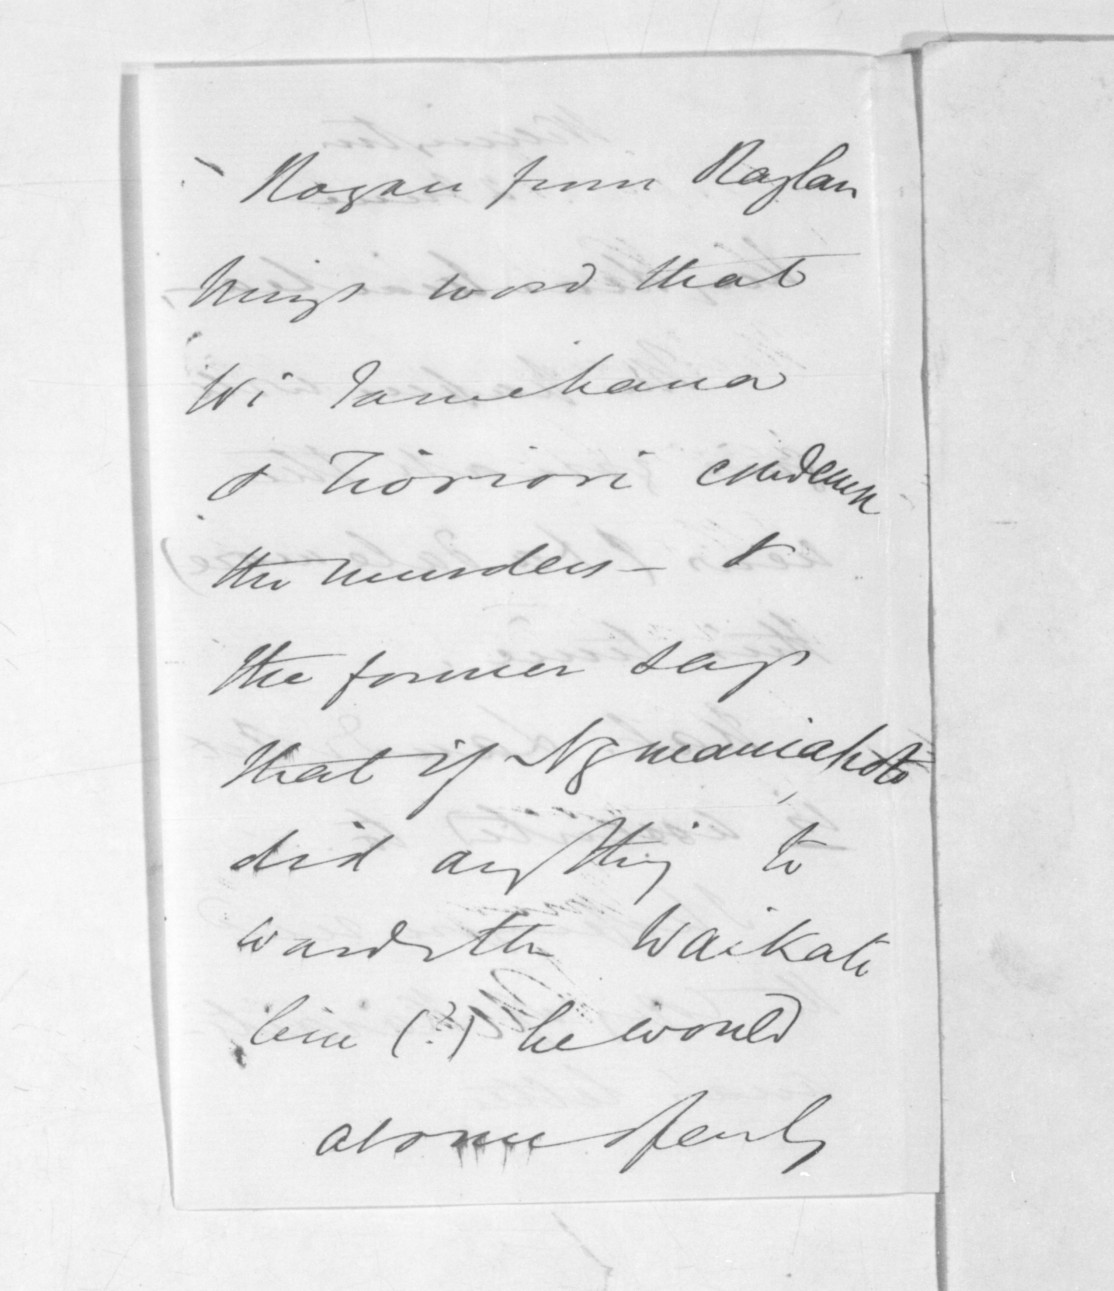 Rogan from Raglan
brings word that
Wi Tamehana
& Tioriori condemn
the murders – &
the former says
that if Ngmaniapoto
did anything to
wards the Waikato
(?) he would
at once openly